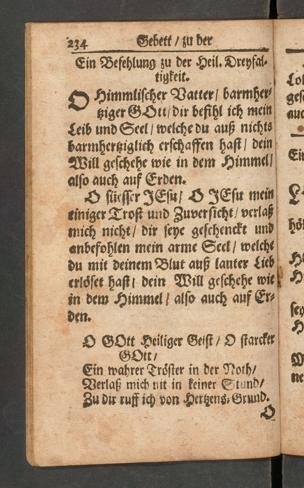 234 Gebett / zu der
Ein Befehlung zu der Heil. Dreyfal-
tigkeit.
O Himmlischer Vatter / barmher-
tziger GOtt / dir befihl ich mein
Leib und Seel / welche du auß nichts
barmhertziglich erschaffen hast / dein
Will geschehe wie in dem Himmel /
also auch auf Erden.
O süesser JEsu / O JEsu mein
einiger Trost und Zuversicht / verlaß
mich nicht / dir seye geschenckt und
anbefohlen mein arme Seel / welche
du mit deinem Blut auß lauter Lieb
erlöset hast / dein Will geschehe wie
in dem Himmel / also auch auf Er-
den.
O GOtt Heiliger Geist / O starcker
GOtt /
Ein wahrer Tröster in der Noth /
Verlaß mich nit in keiner Stund /
Zu dir ruff ich von Hertzens, Grund.
O